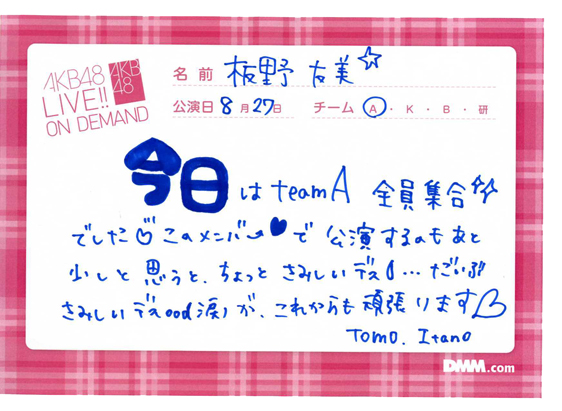 AKB48
LIVE!!
ON DEMAND
AKB
48
名前 板野友美☆
公演日 8月27日 チーム A・K・B・研
今日は teamA 全員集合☆☆
でした♡このメンバー♥で 公演するのもあと
少しと思うと、ちょっと さみしいデス!...だいぶ!!
さみしいデスood涙)が、これからも頑張ります♡
TOMO. Itano
DMM.com